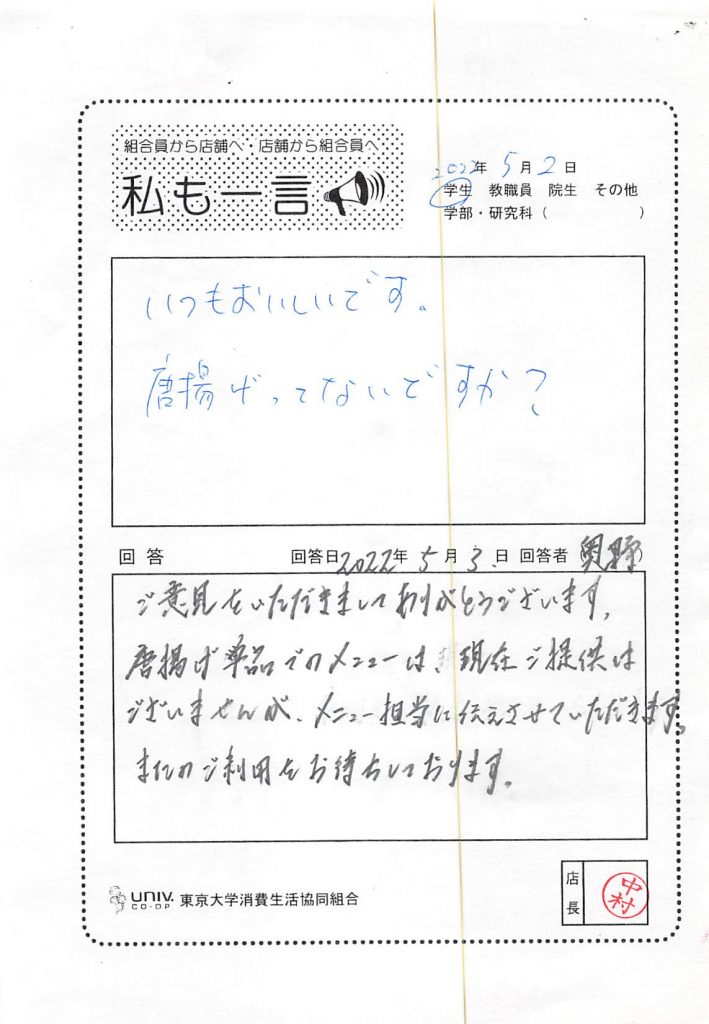 組合員から店舗へ・店舗から組合員へ
私も一言
2022年 5月 2日
学生 教職員 院生 その他
学部・研究科（ ）
いつもおいしいです。
唐揚げってないですか?
回答 回答日2022年 5月 3日 回答者 奥野
ご意見をいただきましてありがとうございます。
唐揚げ単品でのメニューは、現在ご提供は
ございませんが、メニュー担当に伝えさせていただきます。
またのご利用をお待ちしております。
UNIV. CO-OP 東京大学消費生活協同組合
店長 中村